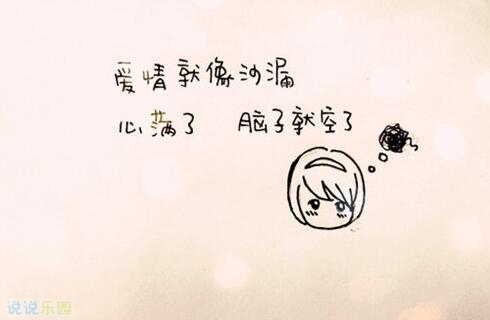 爱情就像沙漏
心满了 脑子就空了
说说乐园